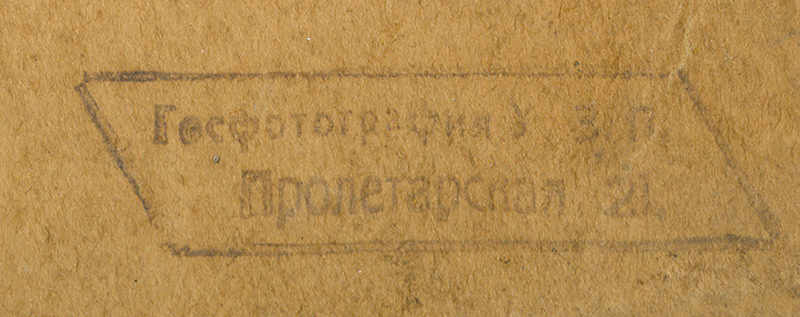 Госфотография У. З. П.
Пролетарская 21.